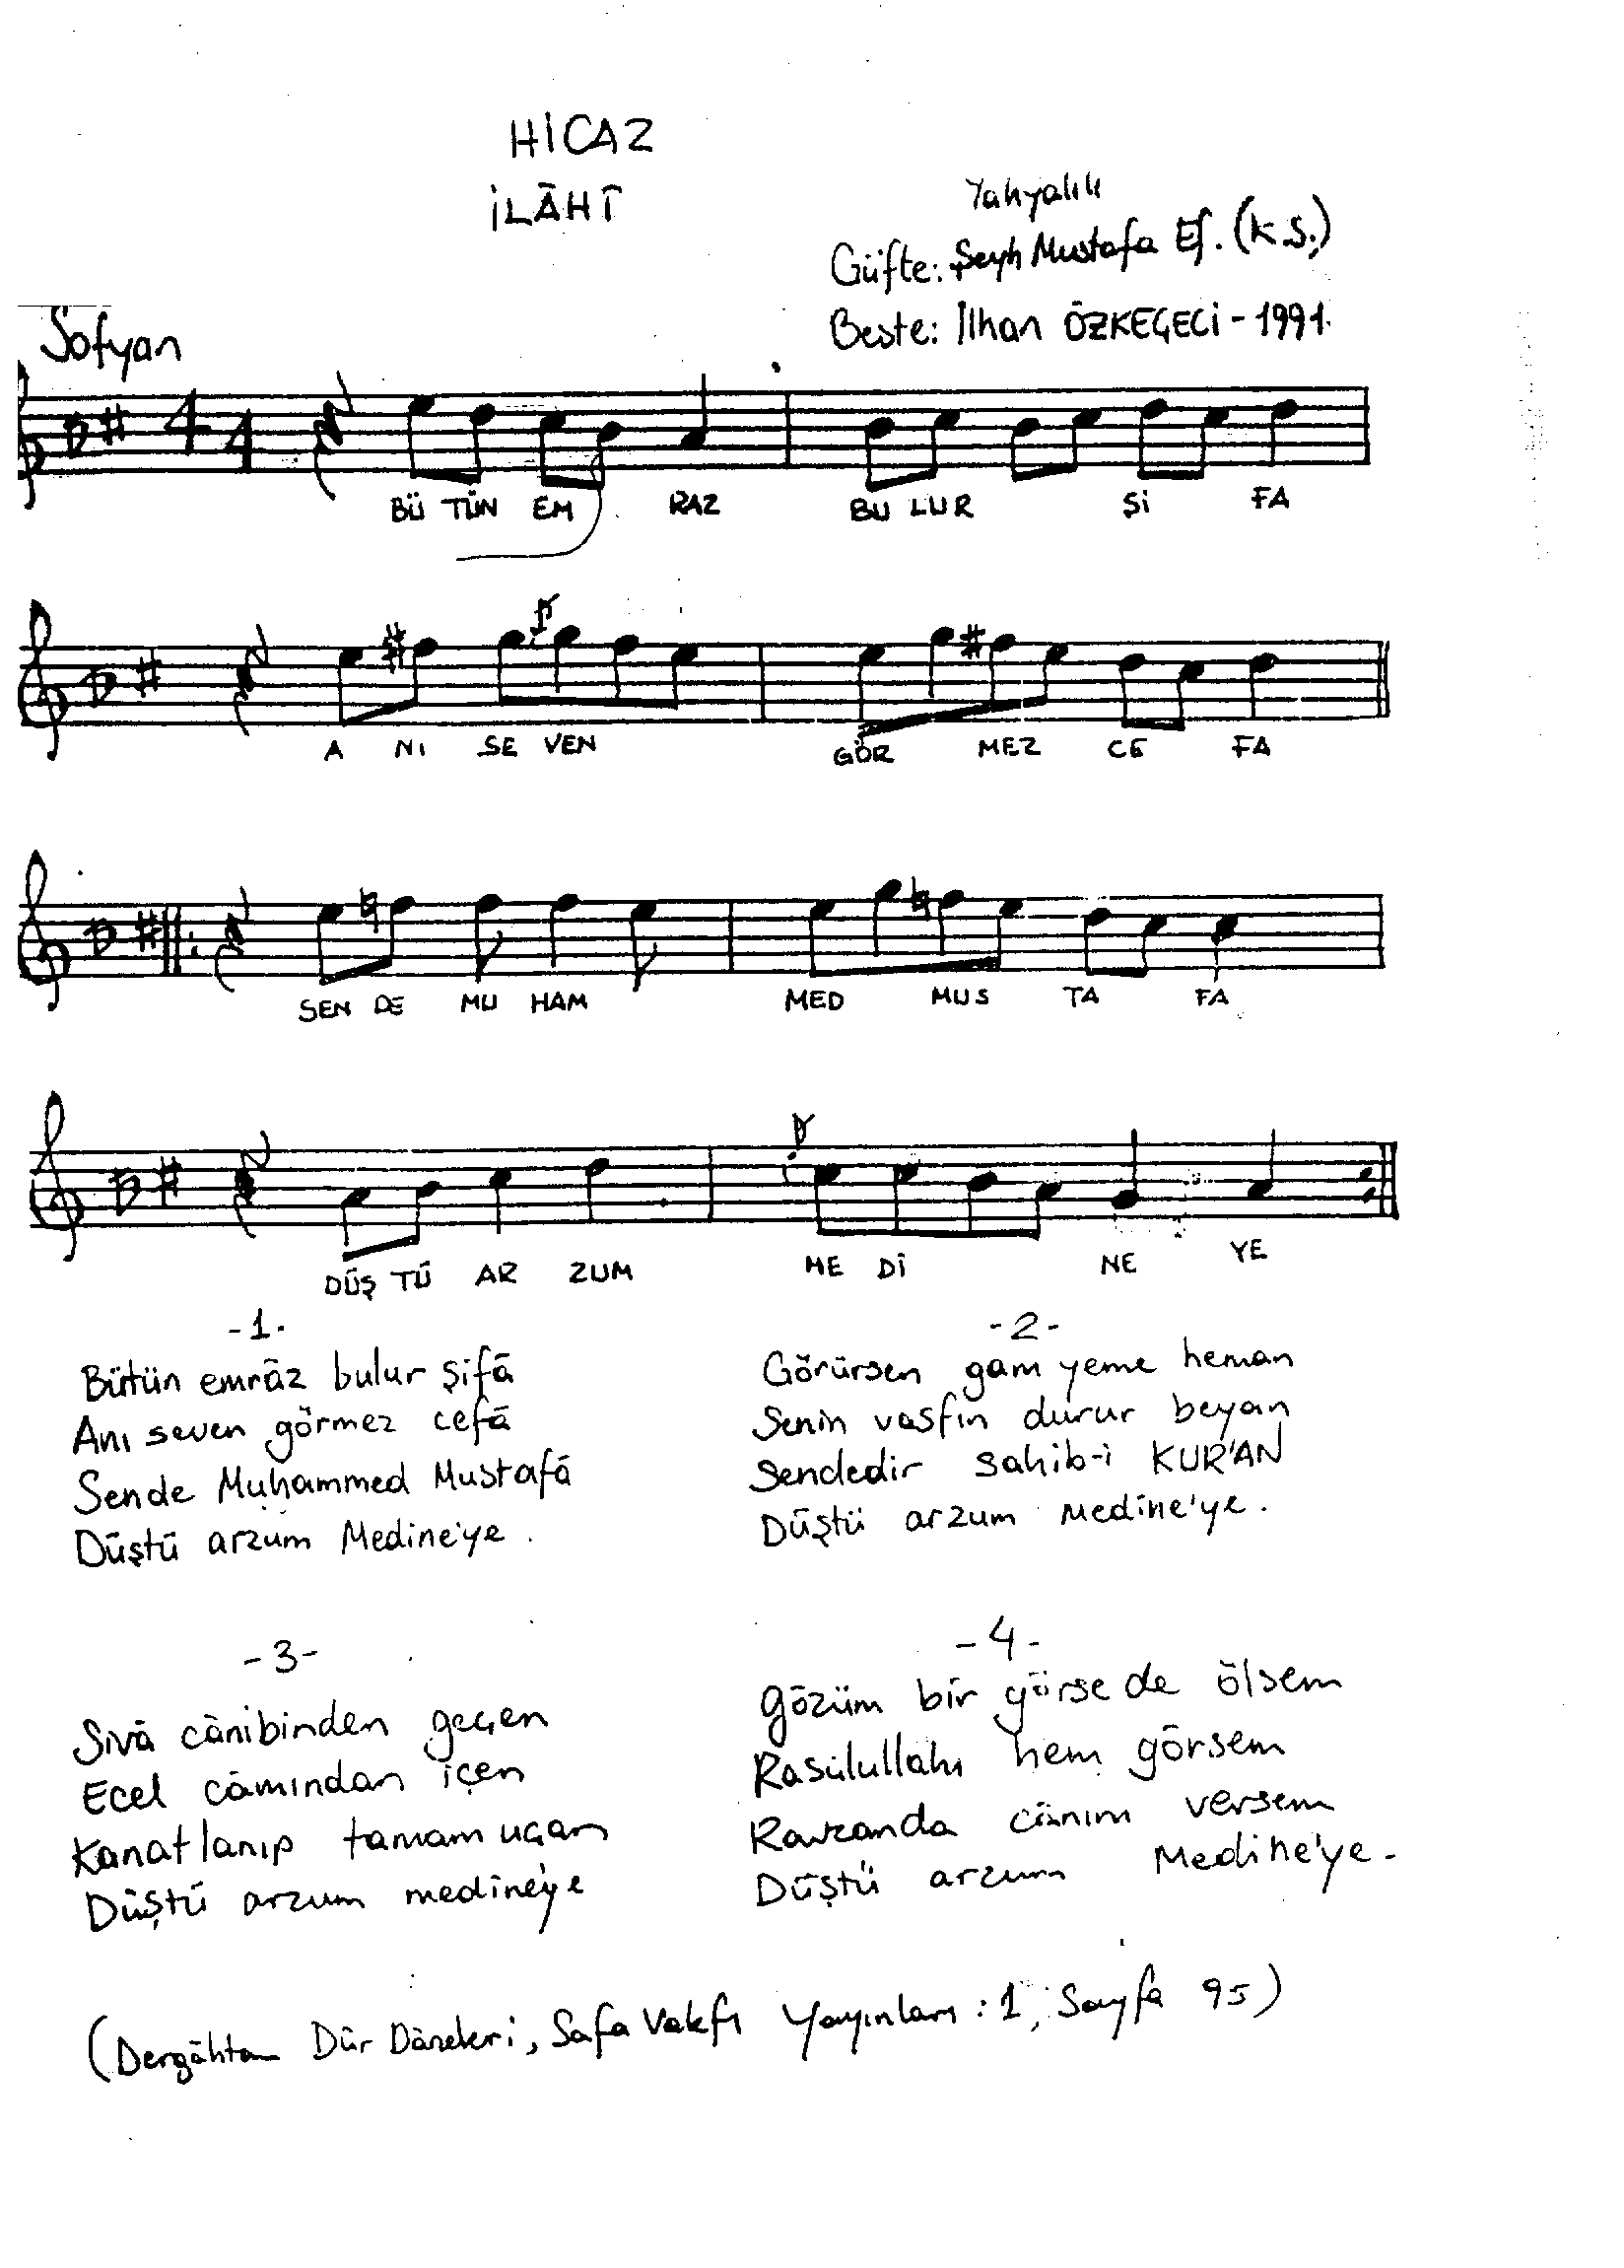 HİCAZ
İLÂHÎ
Yahyalılı
Güfte: Şeyh Mustafa Ef. (K.S.)
Beste: İlhan ÖZKEÇECİ - 1991.
Sofyan
4 4
BÜ TÜN EM RAZ BU LUR Şİ FA
A NI SE VEN GÖR MEZ CE FA
SEN DE MU HAM MED MUS TA FA
DÜŞ TÜ AR ZUM ME Dİ NE YE
-1-
Bütün emrâz bulur şifâ
Anı seven görmez cefâ
Sende Muhammed Mustafâ
Düştü arzum Medine'ye.
-2-
Görürsen gam yeme heman
Senin vasfın durur beyan
Sendedir sahib-i KUR'AN
Düştü arzum Medine'ye.
-3-
Sivâ cânibinden geçen
Ecel câmından içen
Kanatlanıp tamam uçan
Düştü arzum medine'ye
-4-
Gözüm bir görse de ölsem
Rasûlullahı hem görsem
Ravzanda cânım versem
Düştü arzum Medine'ye.
(Dergâhtan Dür Dâneleri, Safa Vakfı Yayınları: 1, Sayfa 95)